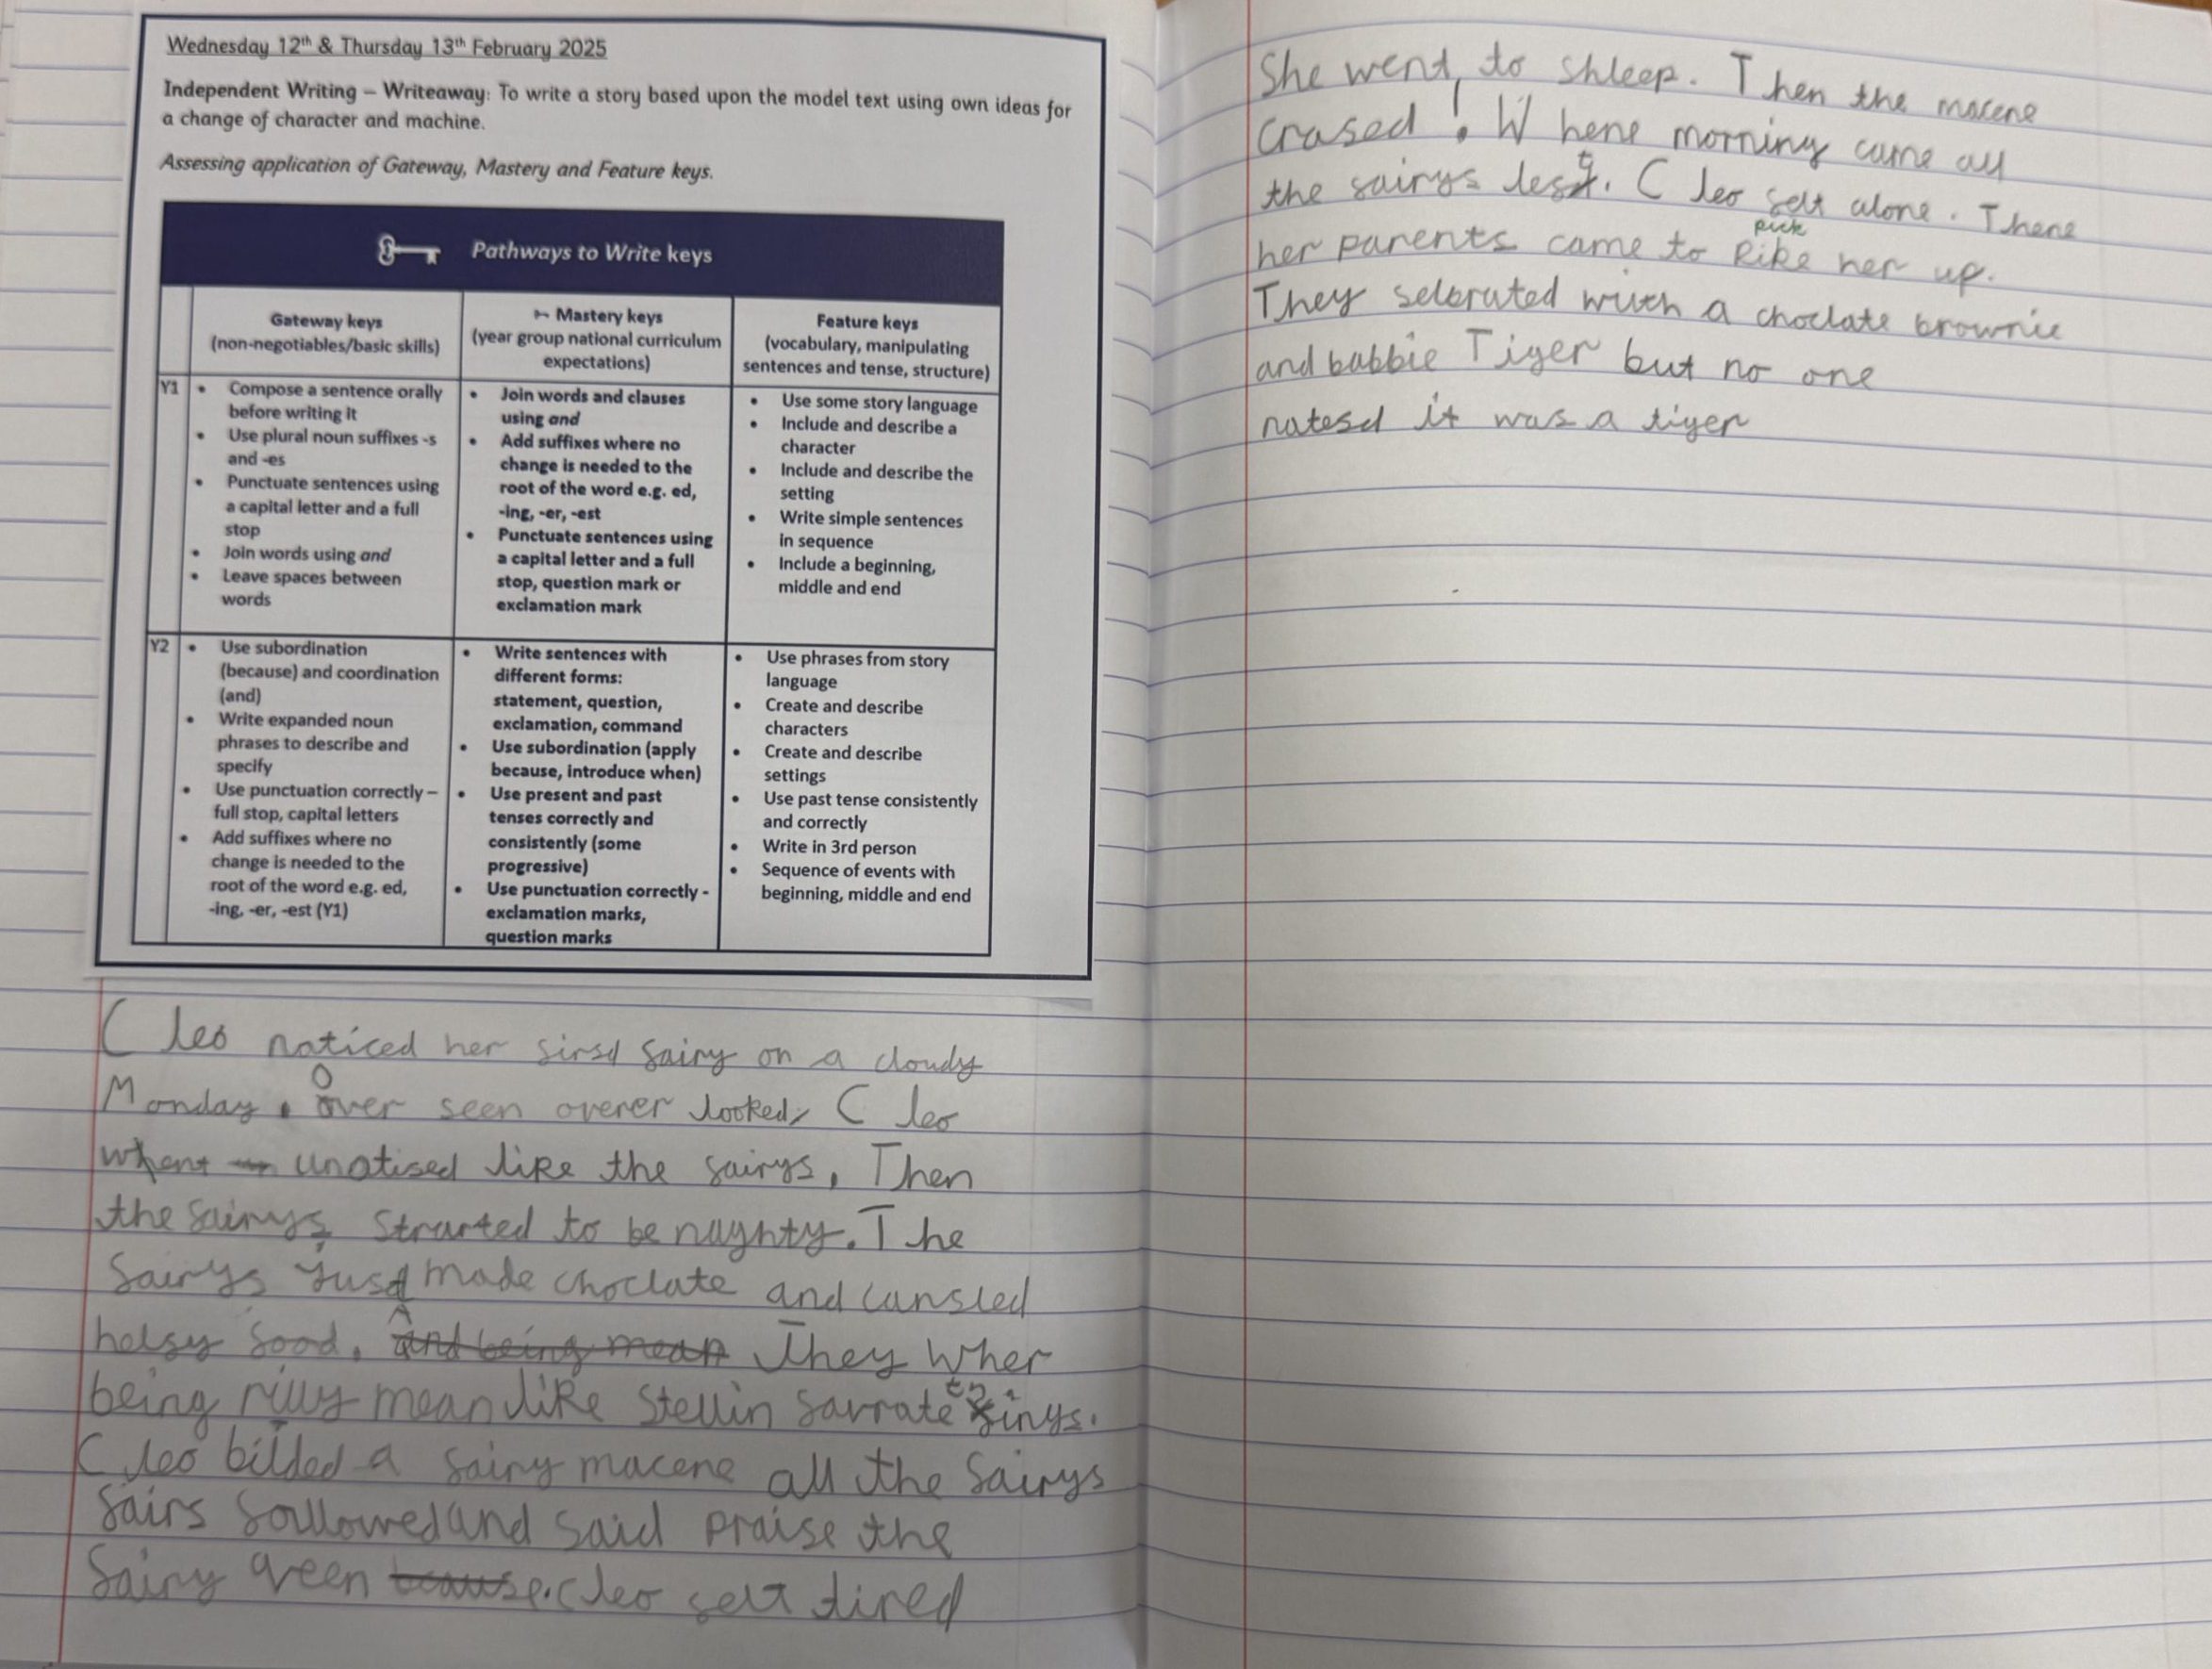 Wednesday 12th & Thursday 13th February 2025
Independent Writing – Writeaway: To write a story based upon the model text using own ideas for
a change of character and machine.
Assessing application of Gateway, Mastery and Feature keys.
Pathways to Write keys
Gateway keys
(non-negotiables/basic skills)
Mastery keys
(year group national curriculum
expectations)
Feature keys
(vocabulary, manipulating
sentences and tense, structure)
Y1
• Compose a sentence orally
before writing it
• Use plural noun suffixes -s
and -es
• Punctuate sentences using
a capital letter and a full
stop
• Join words using and
• Leave spaces between
words
• Join words and clauses
using and
• Add suffixes where no
change is needed to the
root of the word e.g. ed,
-ing, -er, -est
• Punctuate sentences using
a capital letter and a full
stop, question mark or
exclamation mark
• Use some story language
• Include and describe a
character
• Include and describe the
setting
• Write simple sentences
in sequence
• Include a beginning,
middle and end
Y2
• Use subordination
(because) and coordination
(and)
• Write expanded noun
phrases to describe and
specify
• Use punctuation correctly –
full stop, capital letters
• Add suffixes where no
change is needed to the
root of the word e.g. ed,
-ing, -er, -est (Y1)
• Write sentences with
different forms:
statement, question,
exclamation, command
• Use subordination (apply
because, introduce when)
• Use present and past
tenses correctly and
consistently (some
progressive)
• Use punctuation correctly -
exclamation marks,
question marks
• Use phrases from story
language
• Create and describe
characters
• Create and describe
settings
• Use past tense consistently
and correctly
• Write in 3rd person
• Sequence of events with
beginning, middle and end
Cleo noticed her sirsd fairy on a cloudy
Monday. Over seen overer looked, Cleo
whent unotised like the fairys. Then
the fairys strarted to be naghty. The
fairys jusd made choclate and cansled
helsy food. and being mean They wher
being rilly mean like stellin favrate tings.
Cleo bilded a fairy macene all the fairys
fairs follower and said praise the
fairy qeen because. Cleo felt tired
She went to shleep. Then the macene
crased! Whene morning came all
the fairys left. Cleo felt alone. Thene
pick
her parents came to Pike her up.
They selbrated wiith a choclate brownie
and babbie Tiger but no one
notesd it was a tiger